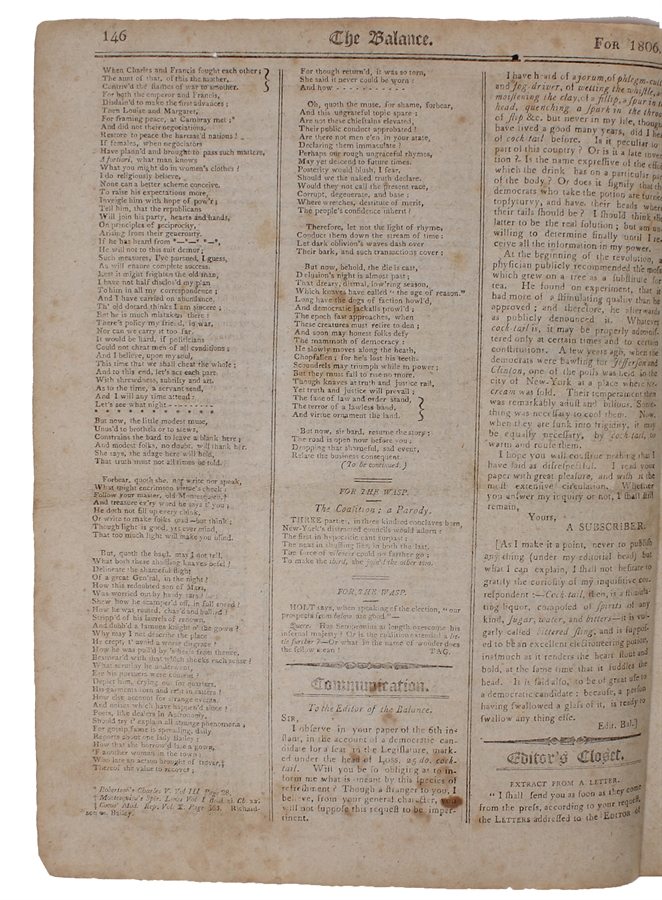 146
The Balance.
FOR 1806.
When Charles and Francis fought each other;
The aunt of that, of this the mother,
Contriv'd the flames of war to smother.
For both the emperor and Francis,
Disdain'd to make the first advances;
Then Louise and Margaret,
For framing peace, at Cambray met;*
And did not their negotiations,
Restore to peace the harrass'd nations?
If females, when negociators
Have plann'd and brought to pass such matters,
A fortiori, what man knows
What you might do in women's clothes?
I do religiously believe,
None can a better scheme conceive.
To raise his expectations more,
Inveigle him with hope of pow'r;
Tell him, that the republicans
Will join his party, hearts and hands,
On principles of reciprocity,
Arising from their generosity.
If he has heard from
He will not to this suit demur;
Such measures, I've pursued, I guess,
As will ensure complete success.
Lest it might frighten the old man,
I have not half disclos'd my plan
To him in all my correspondence;
And I have carried on abundance.
Th' old dotard thinks I am sincere;
But he is much mistaken there!
There's policy my friend, in war,
Nor can we carry it too far.
It would be hard, if politicians
Could not cheat men of all conditions;
And I believe, upon my soul,
This time that we shall cheat the whole;
And to this end, let's act each part,
With shrewdness, subtilty and art.
As to the time, a servant send,
And I will any time attend:
Let's see what night
But now, the little modest muse,
Unus'd to brothels or to stews,
Constrains the bard to leave a blank here;
And modest folks, no doubt, will thank her.
She says, the adage here will hold,
That truth must not all times be told.
Forbear, quoth she, nor write nor speak,
What might encrimson virtue's cheek;
Follow your master, old Montesquieu,†
And treasure ev'ry word he says if you;
He doth not fill up every chink,
Or write to make folks read—but think;
Though light is good, yet ever mind,
That too much light will make you blind.
But, quoth the bard, may I not tell,
What both these shuffling knaves befel?
Delineate the shameful flight
Of a great Gen'ral, in the night?
How this redoubted son of Mars,
Show how he scamper'd off, in full speed?
Stripp'd of his laurels of renown,
And dubb'd a famous knight o' the gown?
Why may I not describe the place
And noises which have happen'd since?
Poets, like dealers in Astronomy,
Should try t' explain all strange phenomena;
For gossip fame is spreading, daily
Reports about one lady Bailey!
How that she borrow'd late a gown,
'F another woman of the town;
Who late an action brought of trover,‡
Thereof the value to recover;
* Robertson's Charles V. Vol III. Page 78.
For though return'd, it was so torn,
She said it never could be worn!
And how - - - - - - - - - -
Oh, quoth the muse, for shame, forbear,
And this ungrateful topic spare;
Are not these chieftains elevated,
Their public conduct approbated?
Are there not men e'en in your state,
Declaring them immaculate?
Perhaps our rough ungrateful rhymes,
May yet descend to future times:
Posterity would blush, I fear,
Should we the naked truth declare.
Would they not call the present race,
Corrupt, degenerate, and base;
Where wretches, destitute of merit,
The people's confidence inherit?
Therefore, let not the light of rhyme,
Conduct them down the stream of time;
Let dark oblivion's waves dash over
Their bark, and such transactions cover:
But now, behold, the die is cast,
Delusion's night is almost past;
That dreary, dismal, low'ring season,
Which knaves have called "the age of reason."
Long have the dogs of faction howl'd,
And democratic jackalls prowl'd;
The epoch fast approaches, when
These creatures must retire to den;
And soon may honest folks defy
The mammoth of democracy:
He slowly moves along the heath,
Chapfallen; for he's lost his teeth.
Scoundrels may triumph while in power;
But they must fall to rise no more.
Though knaves at truth and justice rail,
Yet truth and justice will prevail;
The fane of law and order stand,
The terror of a lawless band,
And virtue ornament the land.
But now, sir bard, resume the story;
The road is open now before you;
Dropping that shameful, sad event,
Relate the business consequent.
(To be continued.)
FOR THE WASP.
The Coalition: a Parody.
THREE parties, in three kindred conclaves born,
New-York's distracted councils would adorn:
The first in hypocritic cant surpast;
The next in shuffling lies; in both the last.
The force of miscreance could no further go;
To make the third, she join'd the other two.
FOR THE WASP.
HOLT says, when speaking of the election, "our
prospects from below are good."
TAG.
Communication.
To the Editor of the Balance.
SIR,
I observe in your paper of the 6th in-
stant, in the account of a democratic can-
didate for a seat in the Legislature, mark-
ed under the head of Loss, 25 do. cock-
tail. Will you be so obliging as to in-
form me what is meant by this species of
refreshment? Though a stranger to you, I
believe, from your general character, you
will not suppose this request to be imper-
tinent.
I have heard of a jorum, of phlegm-cutter
and fog-driver, of wetting the whistle, of
moistening the clay, of a fillip, a spur in the
head, quenching a spark in the throat,
of flip &c. but never in my life, though
have lived a good many years, did I hear
of cock tail before. Is it peculiar to
part of this country? Or is it a late inven-
tion? Is the name expressive of the effect
which the drink has on a particular part
of the body? Or does it signify that the
democrats who take the potion are turned
topsyturvy, and have their heads where
their tails should be? I should think the
latter to be the real solution; but am un-
willing to determine finally until I re-
ceive all the information in my power.
At the beginning of the revolution, a
physician publicly recommended the moss
which grew on a tree as a substitute for
tea. He found on experiment, that it
had more of a stimulating quality than he
approved; and therefore, he afterwards
as publicly denounced it. Whatever
cock tail is, it may be properly adminis-
tered only at certain times and to certain
constitutions. A few years ago, when the
democrats were bawling for Jefferson and
Clinton, one of the polls was held in the
city of New-York at a place where ice-
cream was sold. Their temperament then
was remarkably adust and bilious. Some-
thing was necessary to cool them. Now,
when they are sunk into frigidity, it may
be equally necessary, by cock tail, to
warm and rouse them.
I hope you will construe nothing that I
have said as disrespectful. I read your
paper with great pleasure, and wish it the
most extensive circulation. Whether
you answer my inquiry or not, I shall still
remain,
Yours,
A SUBSCRIBER.
[As I make it a point, never to publish
any thing (under my editorial head) but
what I can explain, I shall not hesitate to
gratify the curiosity of my inquisitive cor-
respondent:—Cock tail, then, is a stimula-
ting liquor, composed of spirits of any
kind, sugar, water, and bitters—it is vul-
garly called bittered sling, and is suppos-
ed to be an excellent electioneering potion,
inasmuch as it renders the heart stout and
bold, at the same time that it fuddles the
head. It is said also, to be of great use to
a democratic candidate: because, a person
having swallowed a glass of it, is ready to
swallow any thing else.
Edit. Bal.]
Editor's Closet.
EXTRACT FROM A LETTER.
"I shall send you as soon as they come
from the press, according to your request,
the LETTERS addressed to the EDITOR